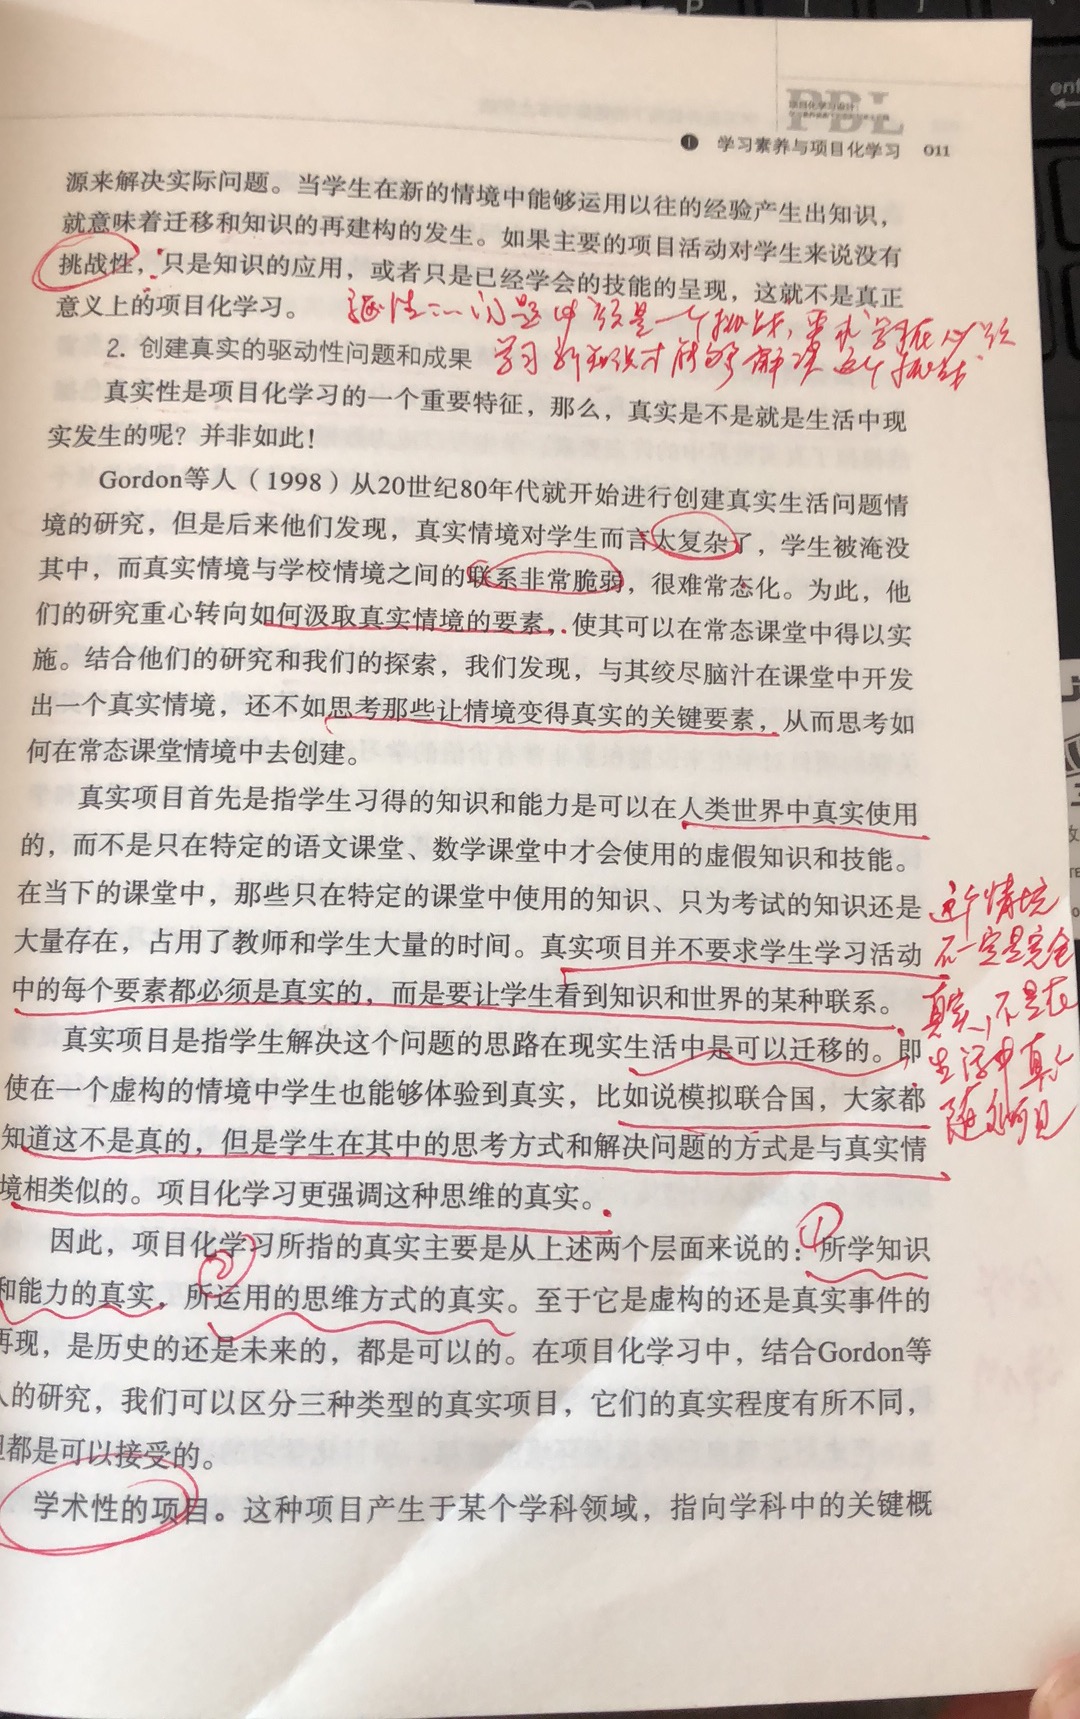 PBL
项目化学习设计
❶ 学习素养与项目化学习 011
源来解决实际问题。当学生在新的情境中能够运用以往的经验产生出知识，
就意味着迁移和知识的再建构的发生。如果主要的项目活动对学生来说没有
挑战性，只是知识的应用，或者只是已经学会的技能的呈现，这就不是真正
意义上的项目化学习。
问题 是一个挑战，要求学生 必须
2. 创建真实的驱动性问题和成果
学习新知识才能够解决这个挑战
真实性是项目化学习的一个重要特征，那么，真实是不是就是生活中现
实发生的呢？并非如此！
Gordon等人（1998）从20世纪80年代就开始进行创建真实生活问题情
境的研究，但是后来他们发现，真实情境对学生而言太复杂了，学生被淹没
其中，而真实情境与学校情境之间的联系非常脆弱，很难常态化。为此，他
们的研究重心转向如何汲取真实情境的要素，使其可以在常态课堂中得以实
施。结合他们的研究和我们的探索，我们发现，与其绞尽脑汁在课堂中开发
出一个真实情境，还不如思考那些让情境变得真实的关键要素，从而思考如
何在常态课堂情境中去创建。
真实项目首先是指学生习得的知识和能力是可以在人类世界中真实使用
的，而不是只在特定的语文课堂、数学课堂中才会使用的虚假知识和技能。
在当下的课堂中，那些只在特定的课堂中使用的知识、只为考试的知识还是
大量存在，占用了教师和学生大量的时间。真实项目并不要求学生学习活动
中的每个要素都必须是真实的，而是要让学生看到知识和世界的某种联系。
这个情境
不一定是完全
真实，不是在
生活中真正
随处可见
真实项目是指学生解决这个问题的思路在现实生活中是可以迁移的。即
使在一个虚构的情境中学生也能够体验到真实，比如说模拟联合国，大家都
知道这不是真的，但是学生在其中的思考方式和解决问题的方式是与真实情
境相类似的。项目化学习更强调这种思维的真实。
因此，项目化学习所指的真实主要是从上述两个层面来说的：①所学知识
和能力的真实，②所运用的思维方式的真实。至于它是虚构的还是真实事件的
再现，是历史的还是未来的，都是可以的。在项目化学习中，结合Gordon等
人的研究，我们可以区分三种类型的真实项目，它们的真实程度有所不同，
但都是可以接受的。
学术性的项目。这种项目产生于某个学科领域，指向学科中的关键概